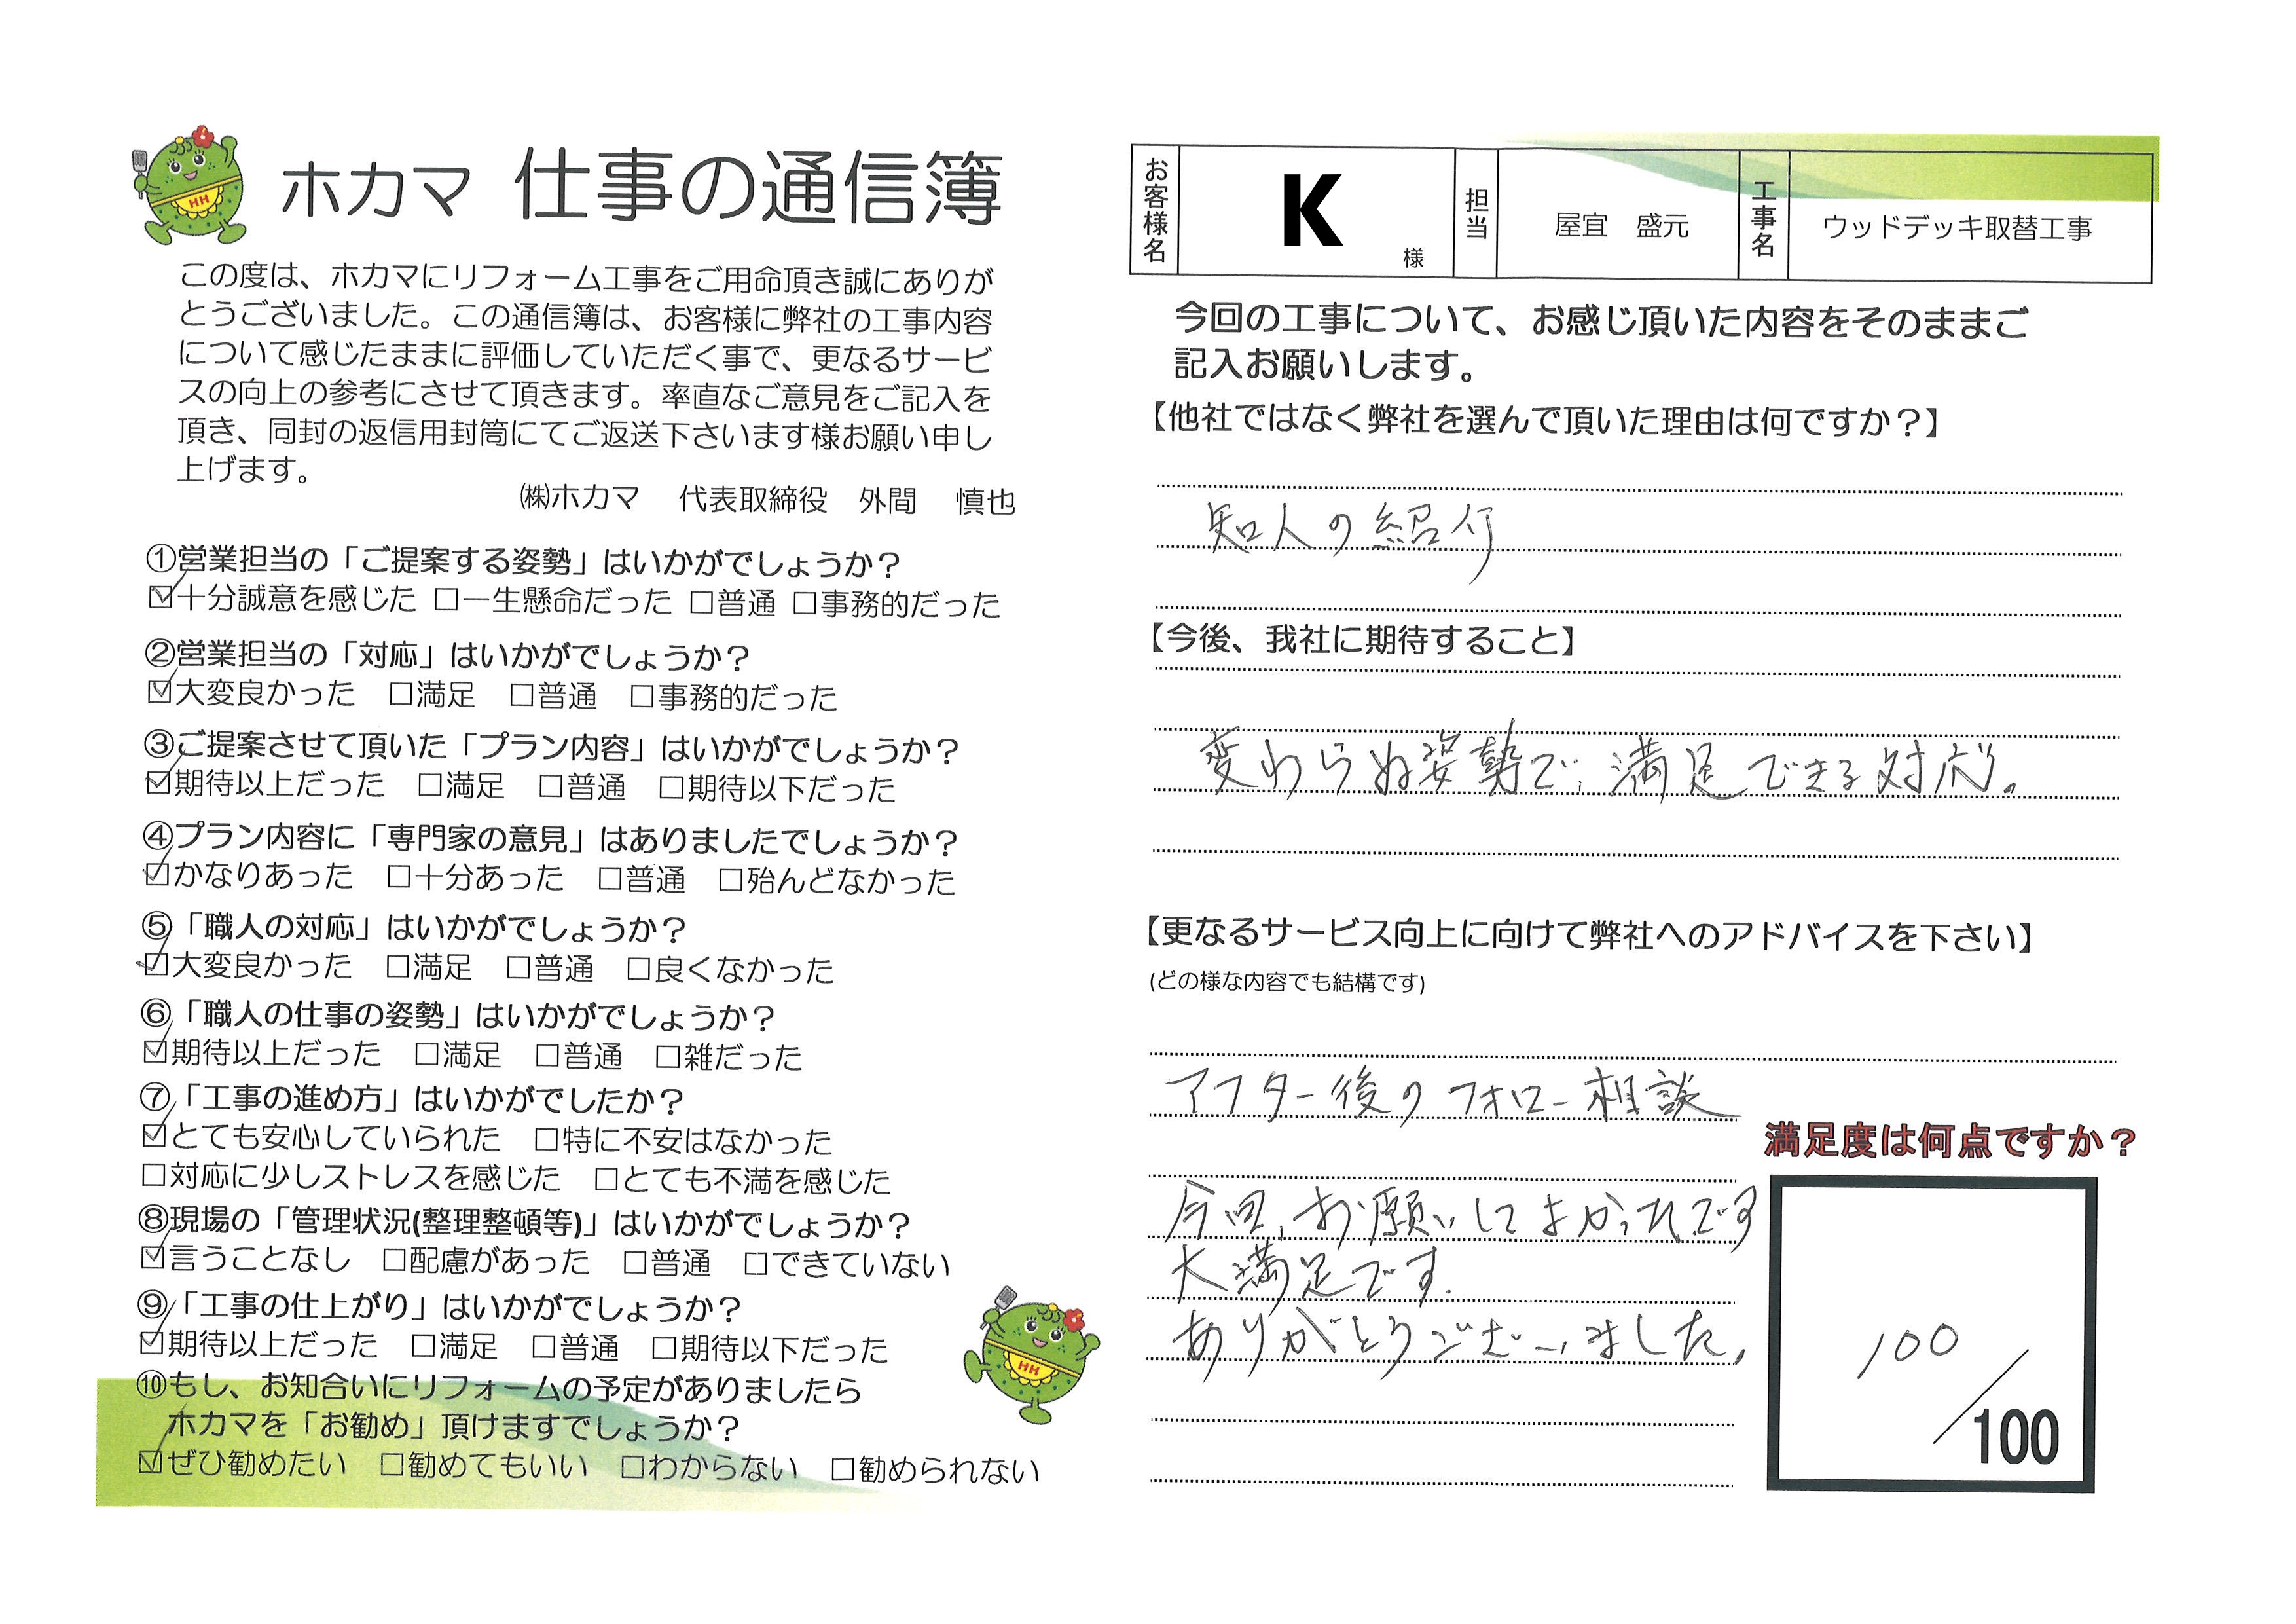 ホカマ 仕事の通信簿
この度は、ホカマにリフォーム工事をご用命頂き誠にありが
とうございました。この通信簿は、お客様に弊社の工事内容
について感じたままに評価していただく事で、更なるサービ
スの向上の参考にさせて頂きます。率直なご意見をご記入を
頂き、同封の返信用封筒にてご返送下さいます様お願い申し
上げます。
㈱ホカマ 代表取締役 外間 慎也
①営業担当の「ご提案する姿勢」はいかがでしょうか？
☑十分誠意を感じた □一生懸命だった □普通 □事務的だった
②営業担当の「対応」はいかがでしょうか？
☑大変良かった □満足 □普通 □事務的だった
③ご提案させて頂いた「プラン内容」はいかがでしょうか？
☑期待以上だった □満足 □普通 □期待以下だった
④プラン内容に「専門家の意見」はありましたでしょうか？
☑かなりあった □十分あった □普通 □殆んどなかった
⑤「職人の対応」はいかがでしょうか？
☑大変良かった □満足 □普通 □良くなかった
⑥「職人の仕事の姿勢」はいかがでしょうか？
☑期待以上だった □満足 □普通 □雑だった
⑦「工事の進め方」はいかがでしたか？
☑とても安心していられた □特に不安はなかった
□対応に少しストレスを感じた □とても不満を感じた
⑧現場の「管理状況(整理整頓等)」はいかがでしょうか？
☑言うことなし □配慮があった □普通 □できていない
⑨「工事の仕上がり」はいかがでしょうか？
☑期待以上だった □満足 □普通 □期待以下だった
⑩もし、お知合いにリフォームの予定がありましたら
ホカマを「お勧め」頂けますでしょうか？
☑ぜひ勧めたい □勧めてもいい □わからない □勧められない
HH
HH
お客様名 K 様 担当 屋宜 盛元 工事名 ウッドデッキ取替工事
今回の工事について、お感じ頂いた内容をそのままご
記入お願いします。
【他社ではなく弊社を選んで頂いた理由は何ですか？】
知人の紹介
【今後、我社に期待すること】
変わらぬ姿勢で、満足できる対応。
【更なるサービス向上に向けて弊社へのアドバイスを下さい】
(どの様な内容でも結構です)
アフター後のフォロー相談
今回、お願いしてよかったです
大満足です.
ありがとうございました。
満足度は何点ですか？
100
／100